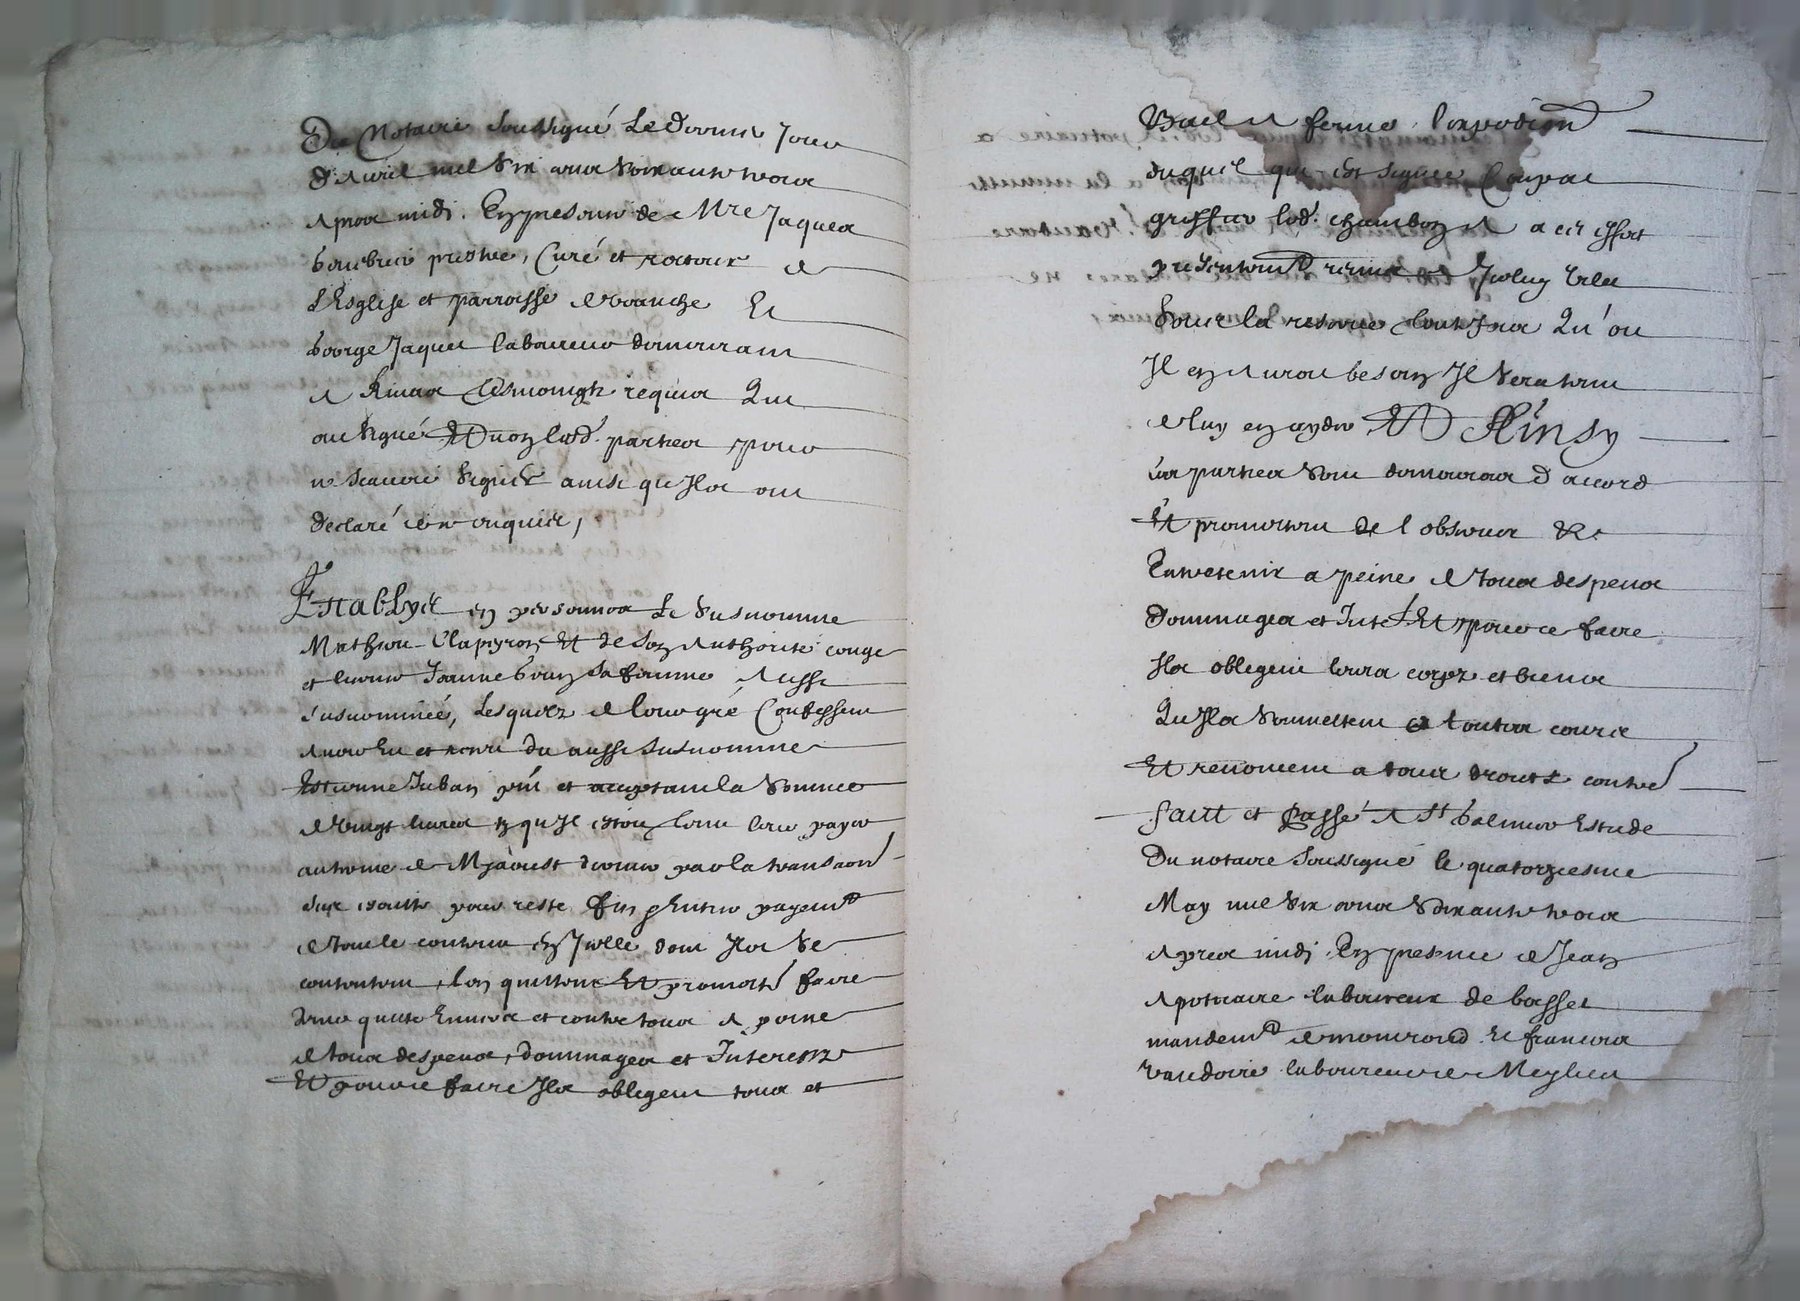 Du Notaire soussigné Le dernier Jour
d'Avril mil six cens soixante trois
Apres midi. En presence de Mre Jaques
prestre, Curé et recteur de
L'Esglise et parroisse de Et
George Jaquet laboureur demeurant
A Rivas tesmoingtz requis Qui
ont signé Et non lesd. parties pour
ne scavoir signer ainsi qu'Ilz ont
declaré de ce enquis,
Establyz en personnes Le susnomme
Mathieu Clapeyron Et de son Authorité conge
et licence Jeanne sa femme Aussi
susnommée, Lesquelz de leur gré Confessent
Avoir Eu et receu du aussi susnomme
Estienne Juban pnt et acceptant la somme
de Vingt livres qu'Il estoit tenu leur payer
au terme de My aoust dernier par la transaon
sus escritte pour reste fin et Entier payemt
de tout le contenu En Icelle dont Ilz se
contentent, l'en quittent Et promettent faire
tenir quitte Envers et contre tous A peine
de tous despens, dommages et Interestz
Et pour ce faire Ilz obligent tous et
Bail A ferme l'expedition
duquel qui est signee
greffier lesd. A cet effect
presentement remis a
Pour la restituer toutesfois Qu'ou
Il en Auroit besoin Il sera tenu
de luy en ayder Et Ainsy
Les parties sont demeurees d'acord
Et promettent de l'observer &
Entretenir a peine de tous despens
Dommages et Intestz Et pour ce faire
Ilz obligent leurs corps et biens
Qu'Ilz soumettent a toutes cours
Et renoncent a tous droits contres
faict et Passé A St Galmier Estude
Du notaire Soussigné le quatorziesme
May mil six cens soixante trois
Apres midi. En presence de Jean
Apoticaire laboureur de
mandemt de montrond Et francois
laboureur de Meylieu